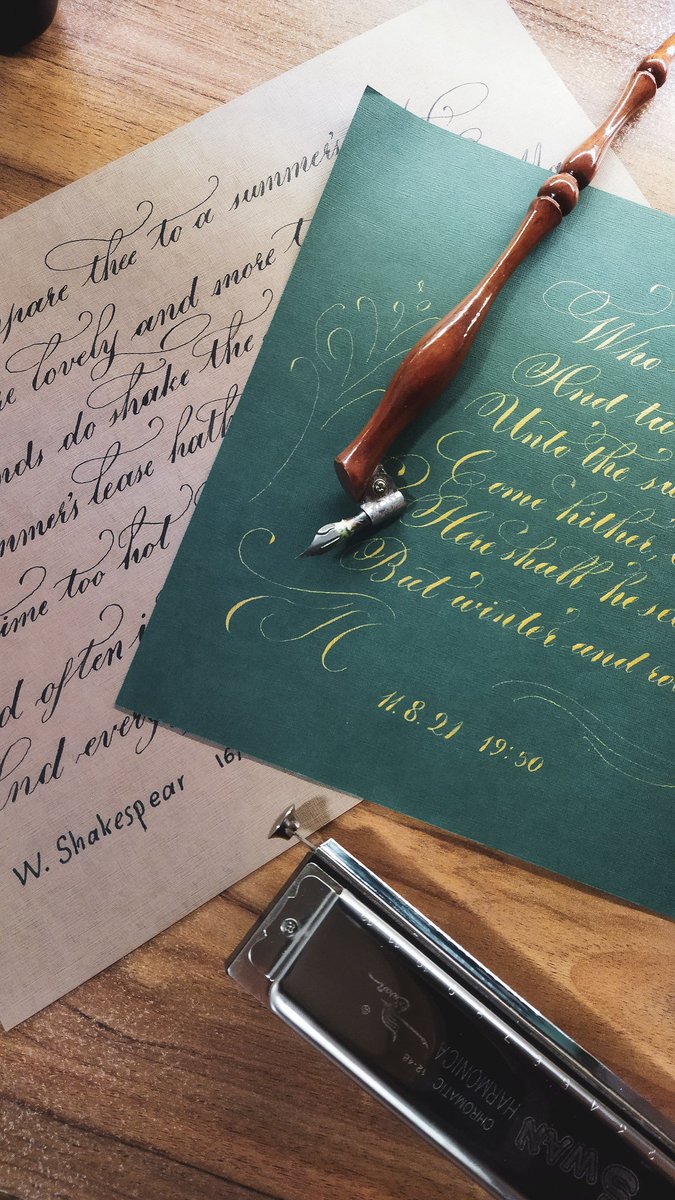 pare thee to a summer's
re lovely and more t
nds do shake the
mmer's lease hat
ime too hot
d often i
nd every
W. Shakespear 16
Who
And tu
Unto the su
Come hither,
Here shall he see
But winter and ro
11.8.21 19:50
SWAN
CHROMATIC 12-48
HARMONICA